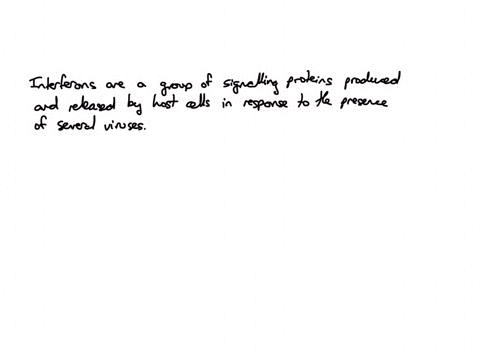 Interferons are a group of signalling proteins produced
and released by host cells in response to the presence
of several viruses.